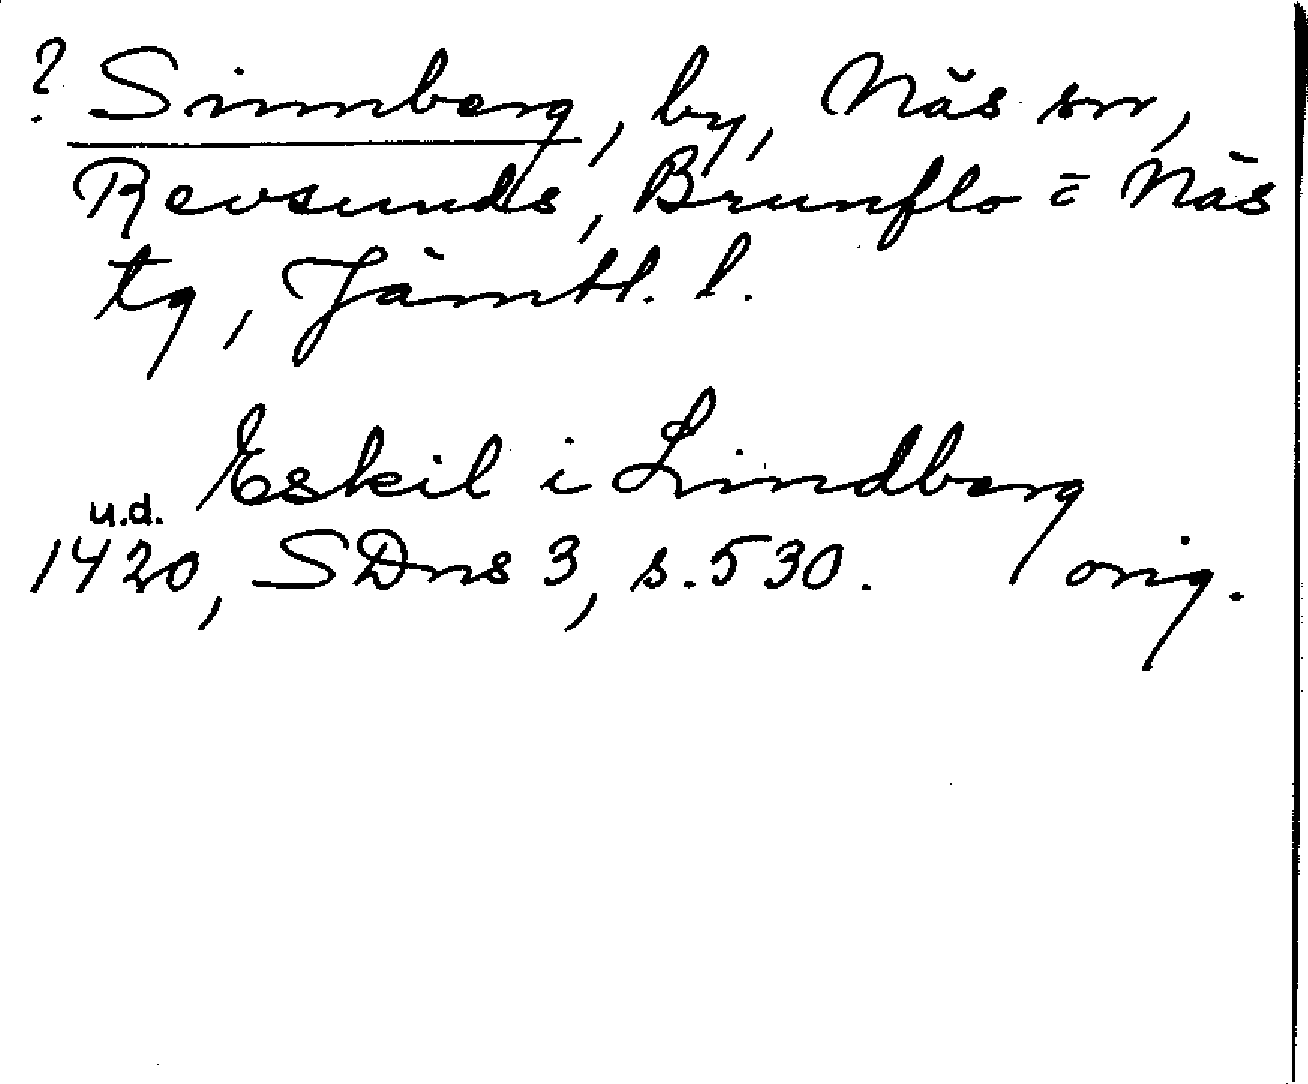 ? Sinnberg, by, Näs sn,
Revsunds, Brunflo o Näs
tg, Jämtl. l.
Eskil i Lindberg
u.d.
1420, SDns 3, s. 530. orig.